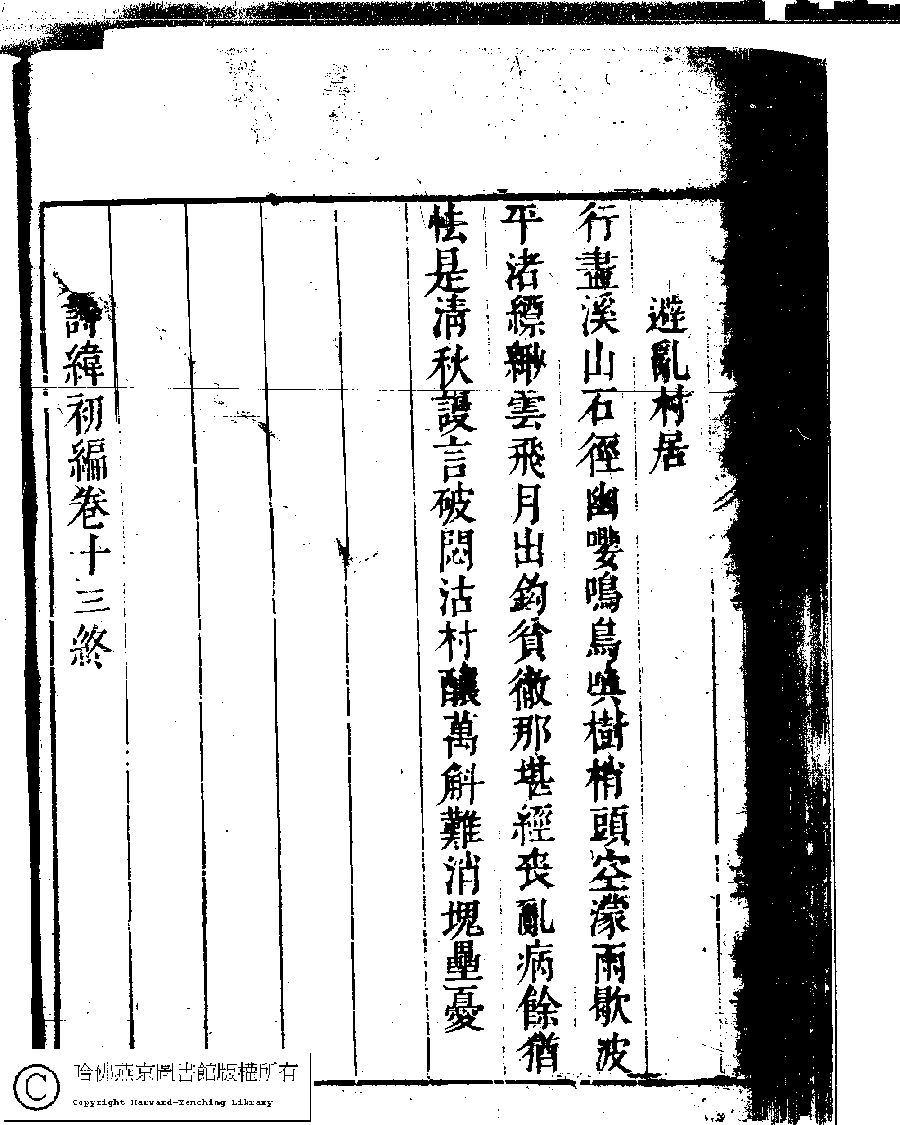 避亂村居
行盡溪山石徑幽嚶鳴鳥喚樹梢頭空濛雨歇波
平渚縹緲雲飛月出鈎貧徹那堪經丧亂病餘猶
怯是清秋謾言破悶沽村釀萬斛難消塊壘憂
詩緯初編卷十三終
哈佛燕京圖書館版權所有
Copyright Harvard-Yenching Library